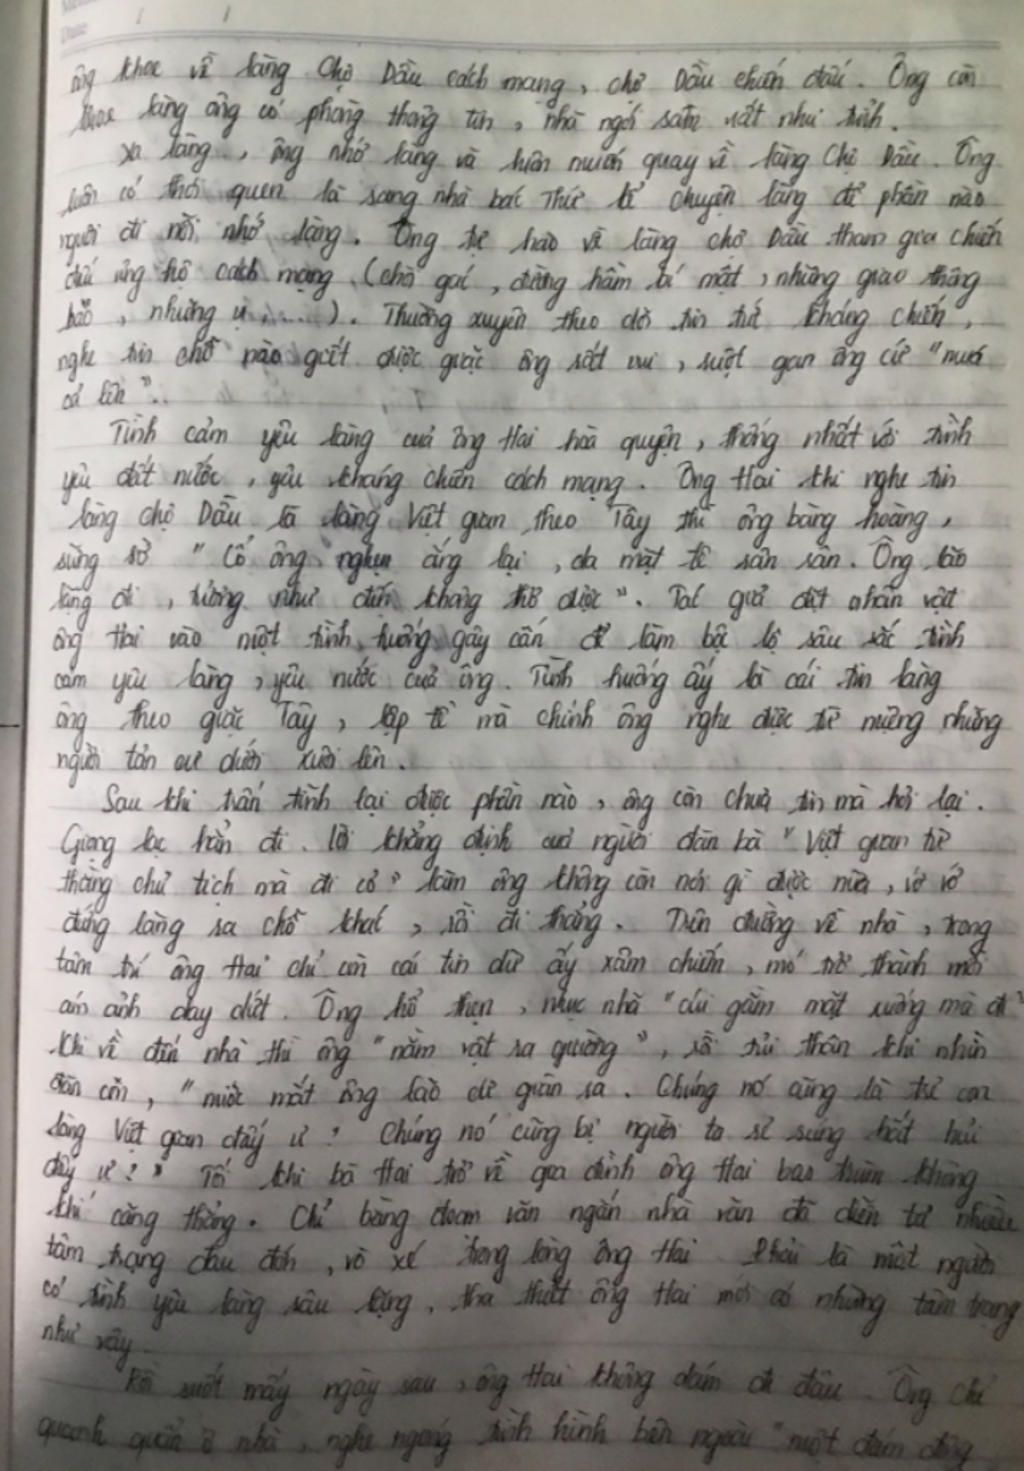 ông khoe về làng Chợ Dầu cách mạng, chợ Dầu chiến đấu. Ông còn
khoe làng ông có phòng thông tin, nhà ngói sầm uất như tỉnh.
Xa làng, ông nhớ làng và luôn muốn quay về làng Chợ Dầu. Ông
luôn có thói quen là sang nhà bác Thứ kể chuyện làng để phần nào
nguôi đi nỗi nhớ làng. Ông tự hào về làng chợ Dầu tham gia chiến
đấu ủng hộ cách mạng (chòi gác, đường hầm bí mật, những giao thông
hào, những ụ,.....). Thường xuyên theo dõi tin tức kháng chiến,
nghe tin chỗ nào giết được giặc ông rất vui, ruột gan ông cứ "múa
cả lên".
Tình cảm yêu làng của ông Hai hoà quyện, thống nhất với tình
yêu đất nước, yêu kháng chiến cách mạng. Ông Hai khi nghe tin
làng chợ Dầu là làng Việt gian theo Tây thì ông bàng hoàng,
sững sờ "Cổ ông nghẹn ắng lại, da mặt tê rân rân. Ông lão
lặng đi, tưởng như đến không thở được". Tác giả đặt nhân vật
ông Hai vào một tình huống gây cấn để làm bộc lộ sâu sắc tình
cảm yêu làng, yêu nước của ông. Tình huống ấy là cái tin làng
ông theo giặc Tây, lập tề mà chính ông nghe được từ miệng những
người tản cư dưới xuôi lên.
Sau khi trấn tĩnh lại được phần nào, ông còn chưa tin mà hỏi lại.
Giọng lạc hẳn đi. lời khẳng định của người đàn bà "Việt gian từ
thằng chủ tịch mà đi cơ" làm ông không còn nói gì được nữa, vờ vờ
đứng lảng ra chỗ khác, rồi đi thẳng. Trên đường về nhà, trong
tâm trí ông Hai chỉ còn cái tin dữ ấy xâm chiếm, nó trở thành nỗi
ám ảnh day dứt. Ông hổ thẹn, nhục nhã "cúi gằm mặt xuống mà đi"
Khi về đến nhà thì ông "nằm vật ra giường", rồi tủi thân khi nhìn
đàn con, "nước mắt ông lão cứ giàn ra. Chúng nó cũng là trẻ con
làng Việt gian đấy ư? Chúng nó cũng bị người ta rẻ rúng hắt hủi
đấy ư?" Tối khi bà Hai trở về gia đình ông Hai bao trùm không
khí căng thẳng. Chỉ bằng đoạn văn ngắn nhà văn đã diễn tả nhiều
tâm trạng đau đớn, vò xé trong lòng ông Hai Phải là một người
có tình yêu làng sâu nặng, tha thiết ông Hai mới có những tâm trạng
như vậy.
Rồi suốt mấy ngày sau, ông Hai không dám đi đâu. Ông chỉ
quanh quẩn ở nhà, nghe ngóng tình hình bên ngoài "một đám đông